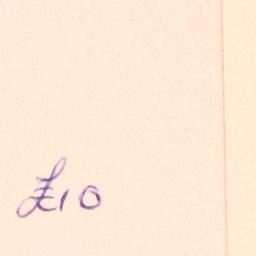 £10